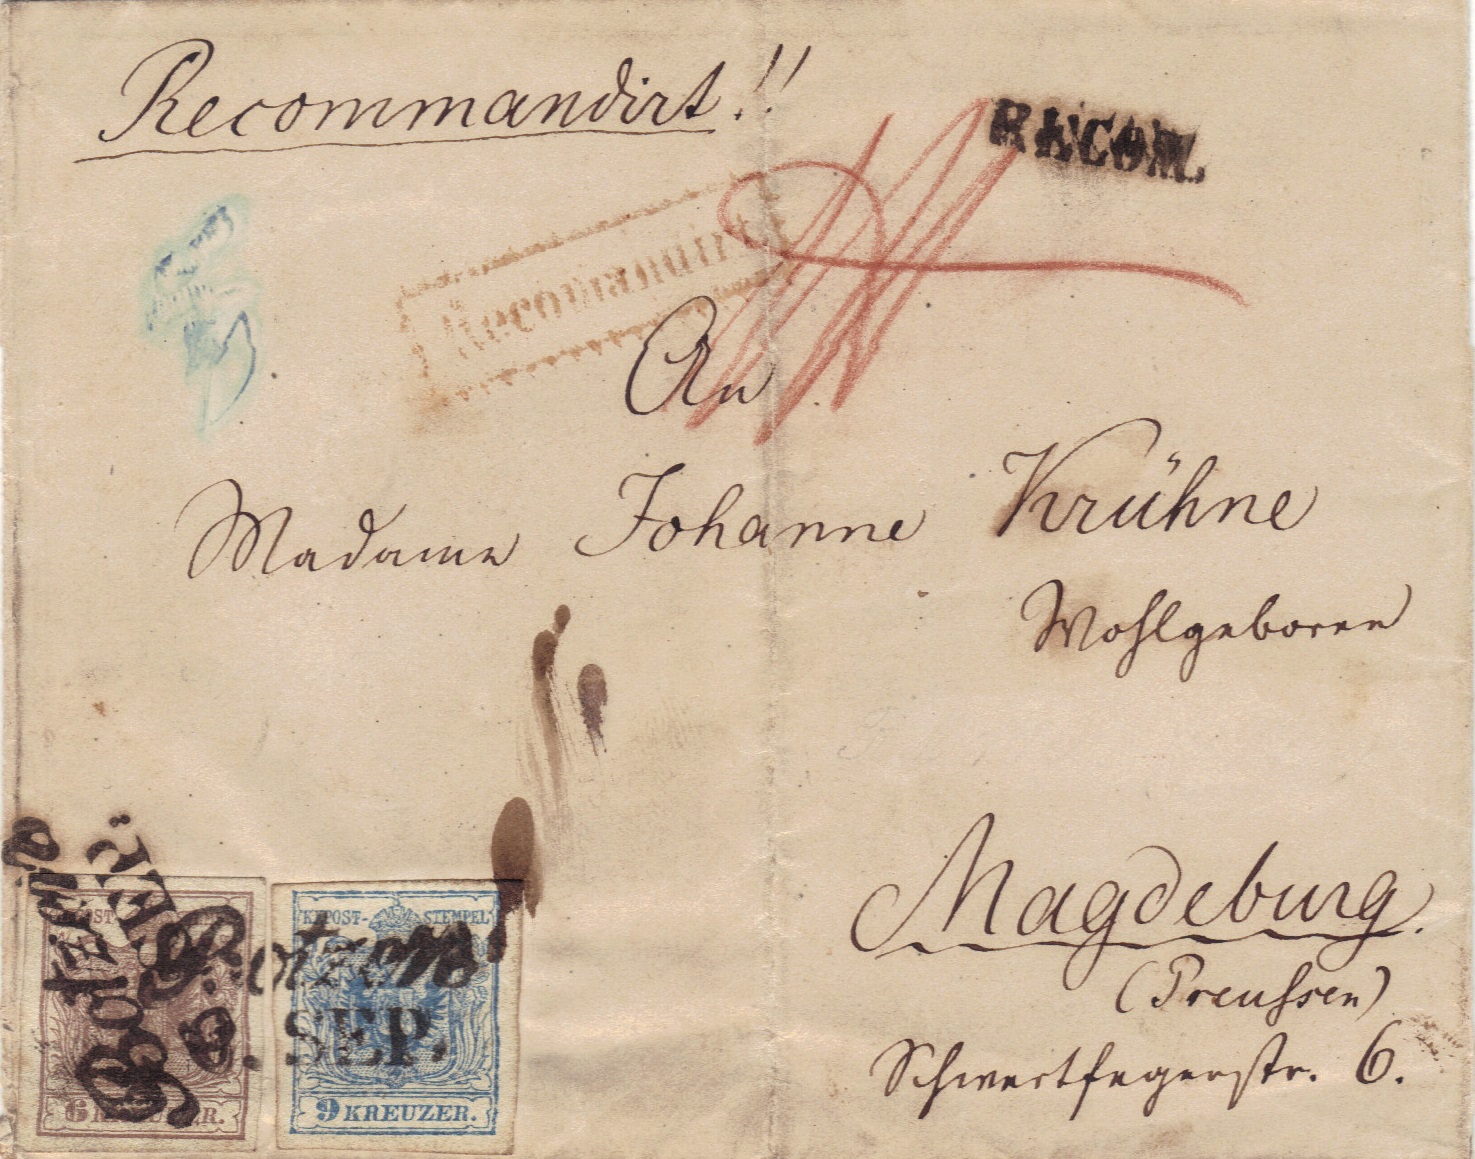 Recommandirt!!
RECOM.
Recommandirt
An
Madame Johanne Krühne
Wohlgeboren
Magdeburg.
(Preussen)
Schwertfegerstr. 6.
Botzen
SEP.
Botzen
8. SEP.
KKPOST-STEMPEL
6 KREUZER.
9 KREUZER.